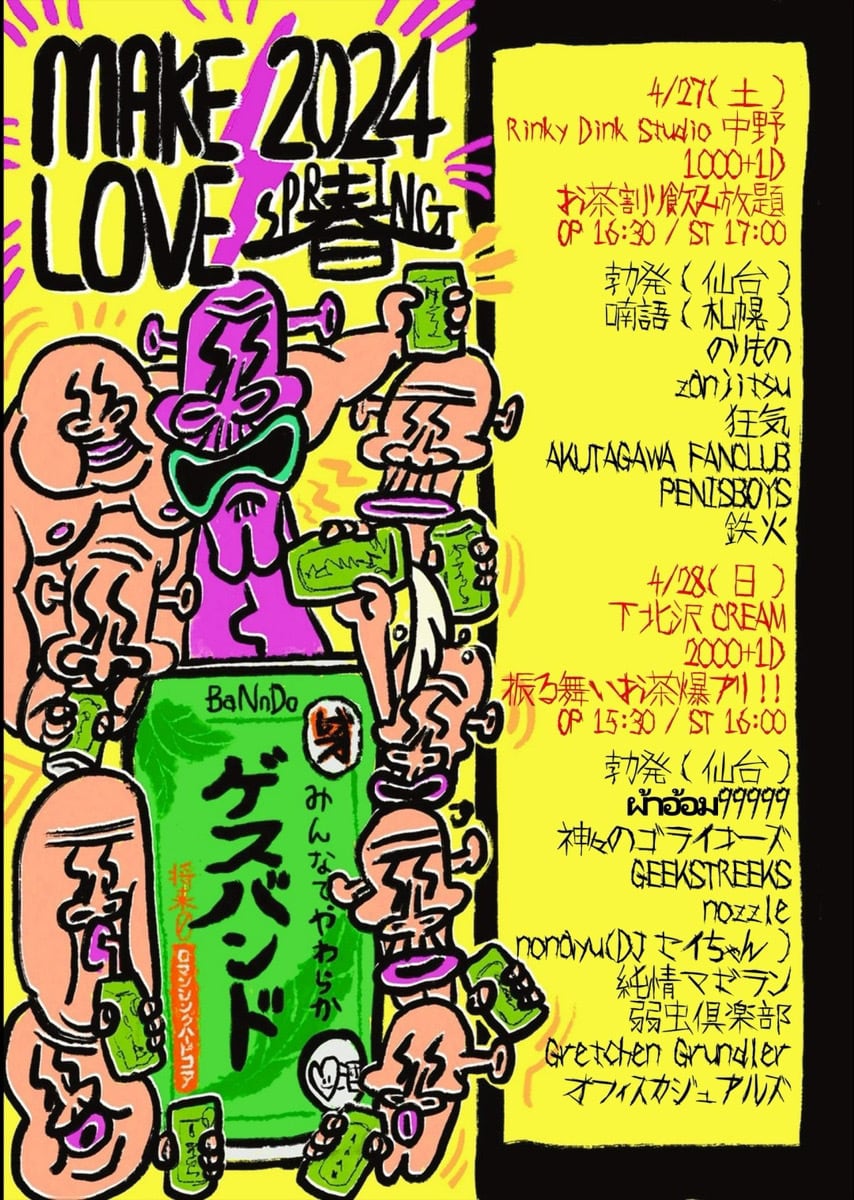 MAKE 2024
LOVE SPR春ING
4/27(土)
Rinky Dink Studio 中野
1000+1D
お茶割り飲み放題
OP 16:30 / ST 17:00
勃発(仙台)
喃語(札幌)
のりもの
zanjitsu
狂気
AKUTAGAWA FANCLUB
PENISBOYS
鉄火
4/28(日)
下北沢 CREAM
2000+1D
振る舞いお茶爆アリ!!
OP 15:30 / ST 16:00
勃発(仙台)
ผ้าอ้อม99999
神々のゴライコーズ
GEEKSTREEKS
nozzle
nonayu(DJ セイちゃん)
純情マゼラン
弱虫倶楽部
Gretchen Grundler
オフィスカジュアルズ
BaNnDo
みんなでやわらか
ゲスバンド
将来の
ロマンシングハードコア